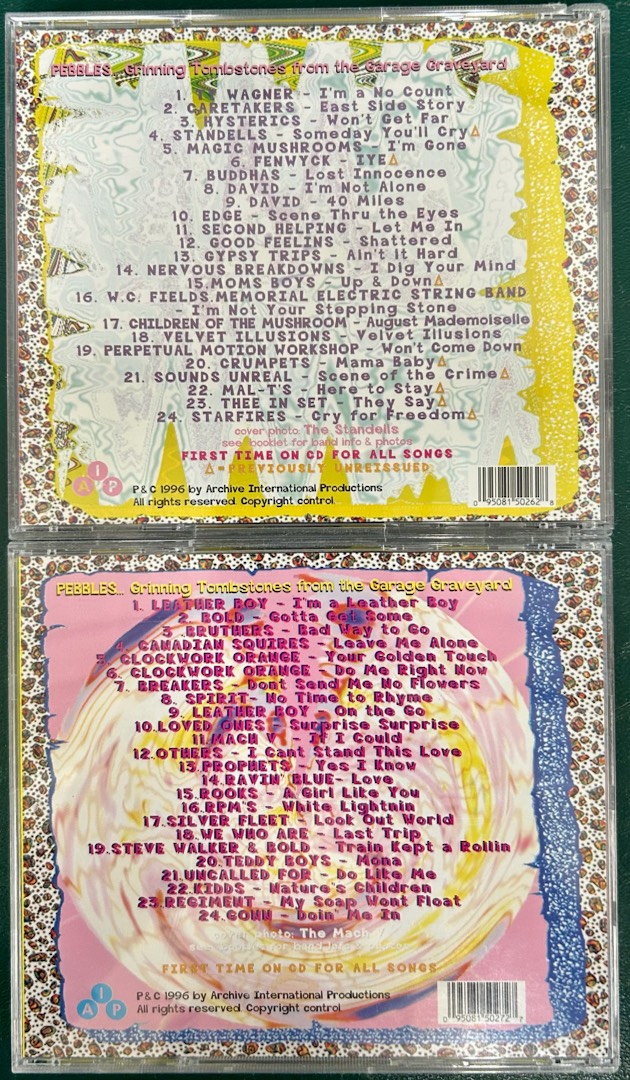 PEBBLES... Grinning Tombstones from the Garage Graveyard
1. WAGNER - I'm a No Count
2. CARETAKERS - East Side Story
3. HYSTERICS - Won't Get Far
4. STANDELLS - Someday You'll Cry△
5. MAGIC MUSHROOMS - I'm Gone
6. FENWYCK - IYE△
7. BUDDHAS - Lost Innocence
8. DAVID - I'm Not Alone
9. DAVID - 40 Miles
10. EDGE - Scene Thru the Eyes
11. SECOND HELPING - Let Me In
12. GOOD FEELINS - Shattered
13. GYPSY TRIPS - Ain't it Hard
14. NERVOUS BREAKDOWNS - I Dig Your Mind
15.MOMS BOYS - Up & Down△
16. W.C. FIELDS.MEMORIAL ELECTRIC STRING BAND
- I'm Not Your Stepping Stone
17. CHILDREN OF THE MUSHROOM - August Mademoiselle
18. VELVET ILLUSIONS - Velvet Illusions
19. PERPETUAL MOTION WORKSHOP - Won't Come Down
20. CRUMPETS - Mama Baby△
21. SOUNDS UNREAL - Scene of the Crime△
22. MAL-T'S - Here to Stay△
23. THEE IN SET - They Say△
24. STARFIRES - Cry for Freedom△
cover photo: The Standells
see booklet for band info & photos
FIRST TIME ON CD FOR ALL SONGS
△=PREVIOUSLY UNREISSUED
A I P
P & C 1996 by Archive International Productions
All rights reserved. Copyright control.
0 95081 50262 8
PEBBLES... Grinning Tombstones from the Garage Graveyard
1. LEATHER BOY - I'm a Leather Boy
2. BOLD - Gotta Get Some
3. BRUTHERS - Bad Way to Go
4. CANADIAN SQUIRES - Leave Me Alone
5. CLOCKWORK ORANGE - Your Golden Touch
6. CLOCKWORK ORANGE - Do Me Right Now
7. BREAKERS - Dont Send Me No Flowers
8. SPIRIT- No Time to Rhyme
9. LEATHER BOY - On the Go
10.LOVED ONES - Surprise Surprise
11.MACH V - If I Could
12.OTHERS - I Cant Stand This Love
13.PROPHETS - Yes I Know
14.RAVIN' BLUE- Love
15.ROOKS - A Girl Like You
16.RPM'S - White Lightnin
17.SILVER FLEET - Look Out World
18.WE WHO ARE - Last Trip
19.STEVE WALKER & BOLD - Train Kept a Rollin
20.TEDDY BOYS - Mona
21.UNCALLED FOR - Do Like Me
22.KIDDS - Nature's Children
23.REGIMENT - My Soap Wont Float
24.GONN - Doin' Me In
photo: The Mach
for band info
FIRST TIME ON CD FOR ALL SONGS
A I P
P & C 1996 by Archive International Productions
All rights reserved. Copyright control.
0 95081 50272 7